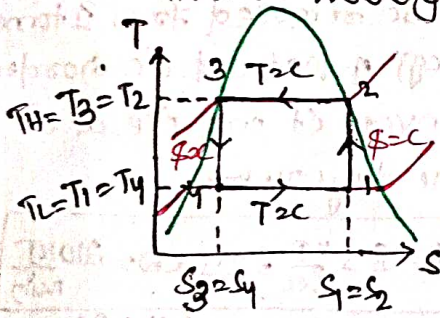 T
3 T=C 2
TH=T3=T2
S=C S=C
TL=T1=T4 4 T=C 1
S
S3=S4 S1=S2